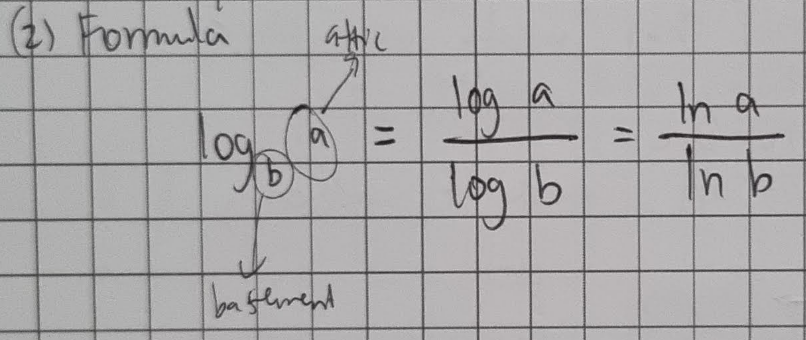 (2) Formula
attic
log_b a = log a / log b = ln a / ln b
basement